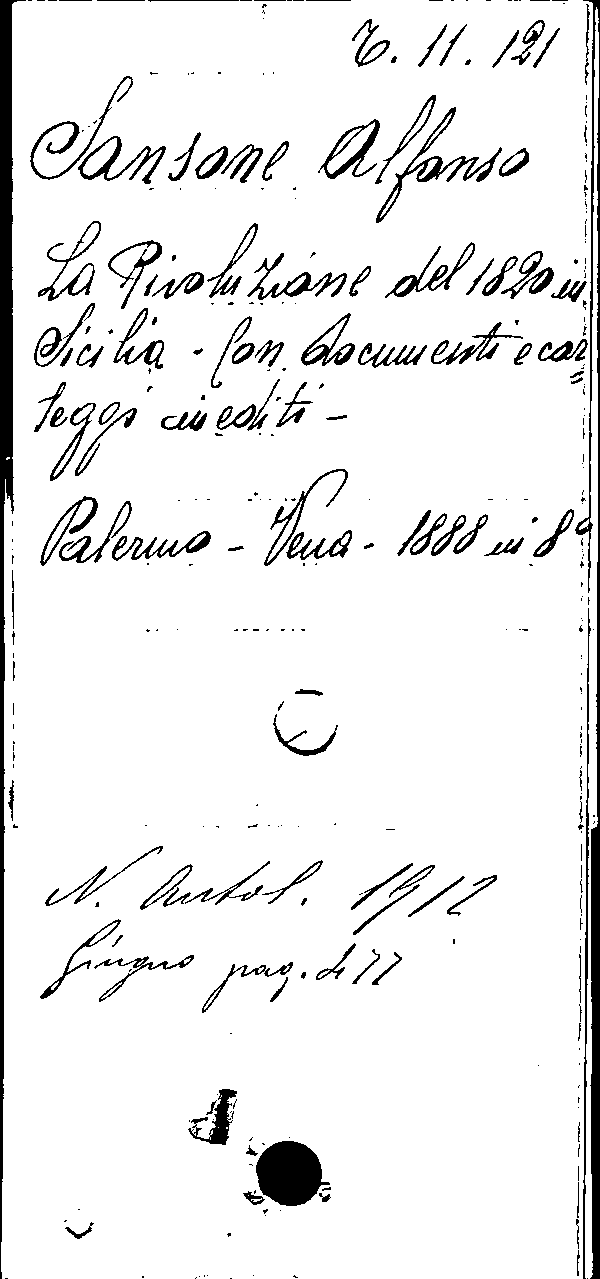 6. 11. 121
Sansone Alfonso
La Rivoluzione del 1820 in
Sicilia - Con documenti e car=
teggi inediti -
Palermo - Vena - 1888 in 8°
N. Antol. 1912
Giugno pag.